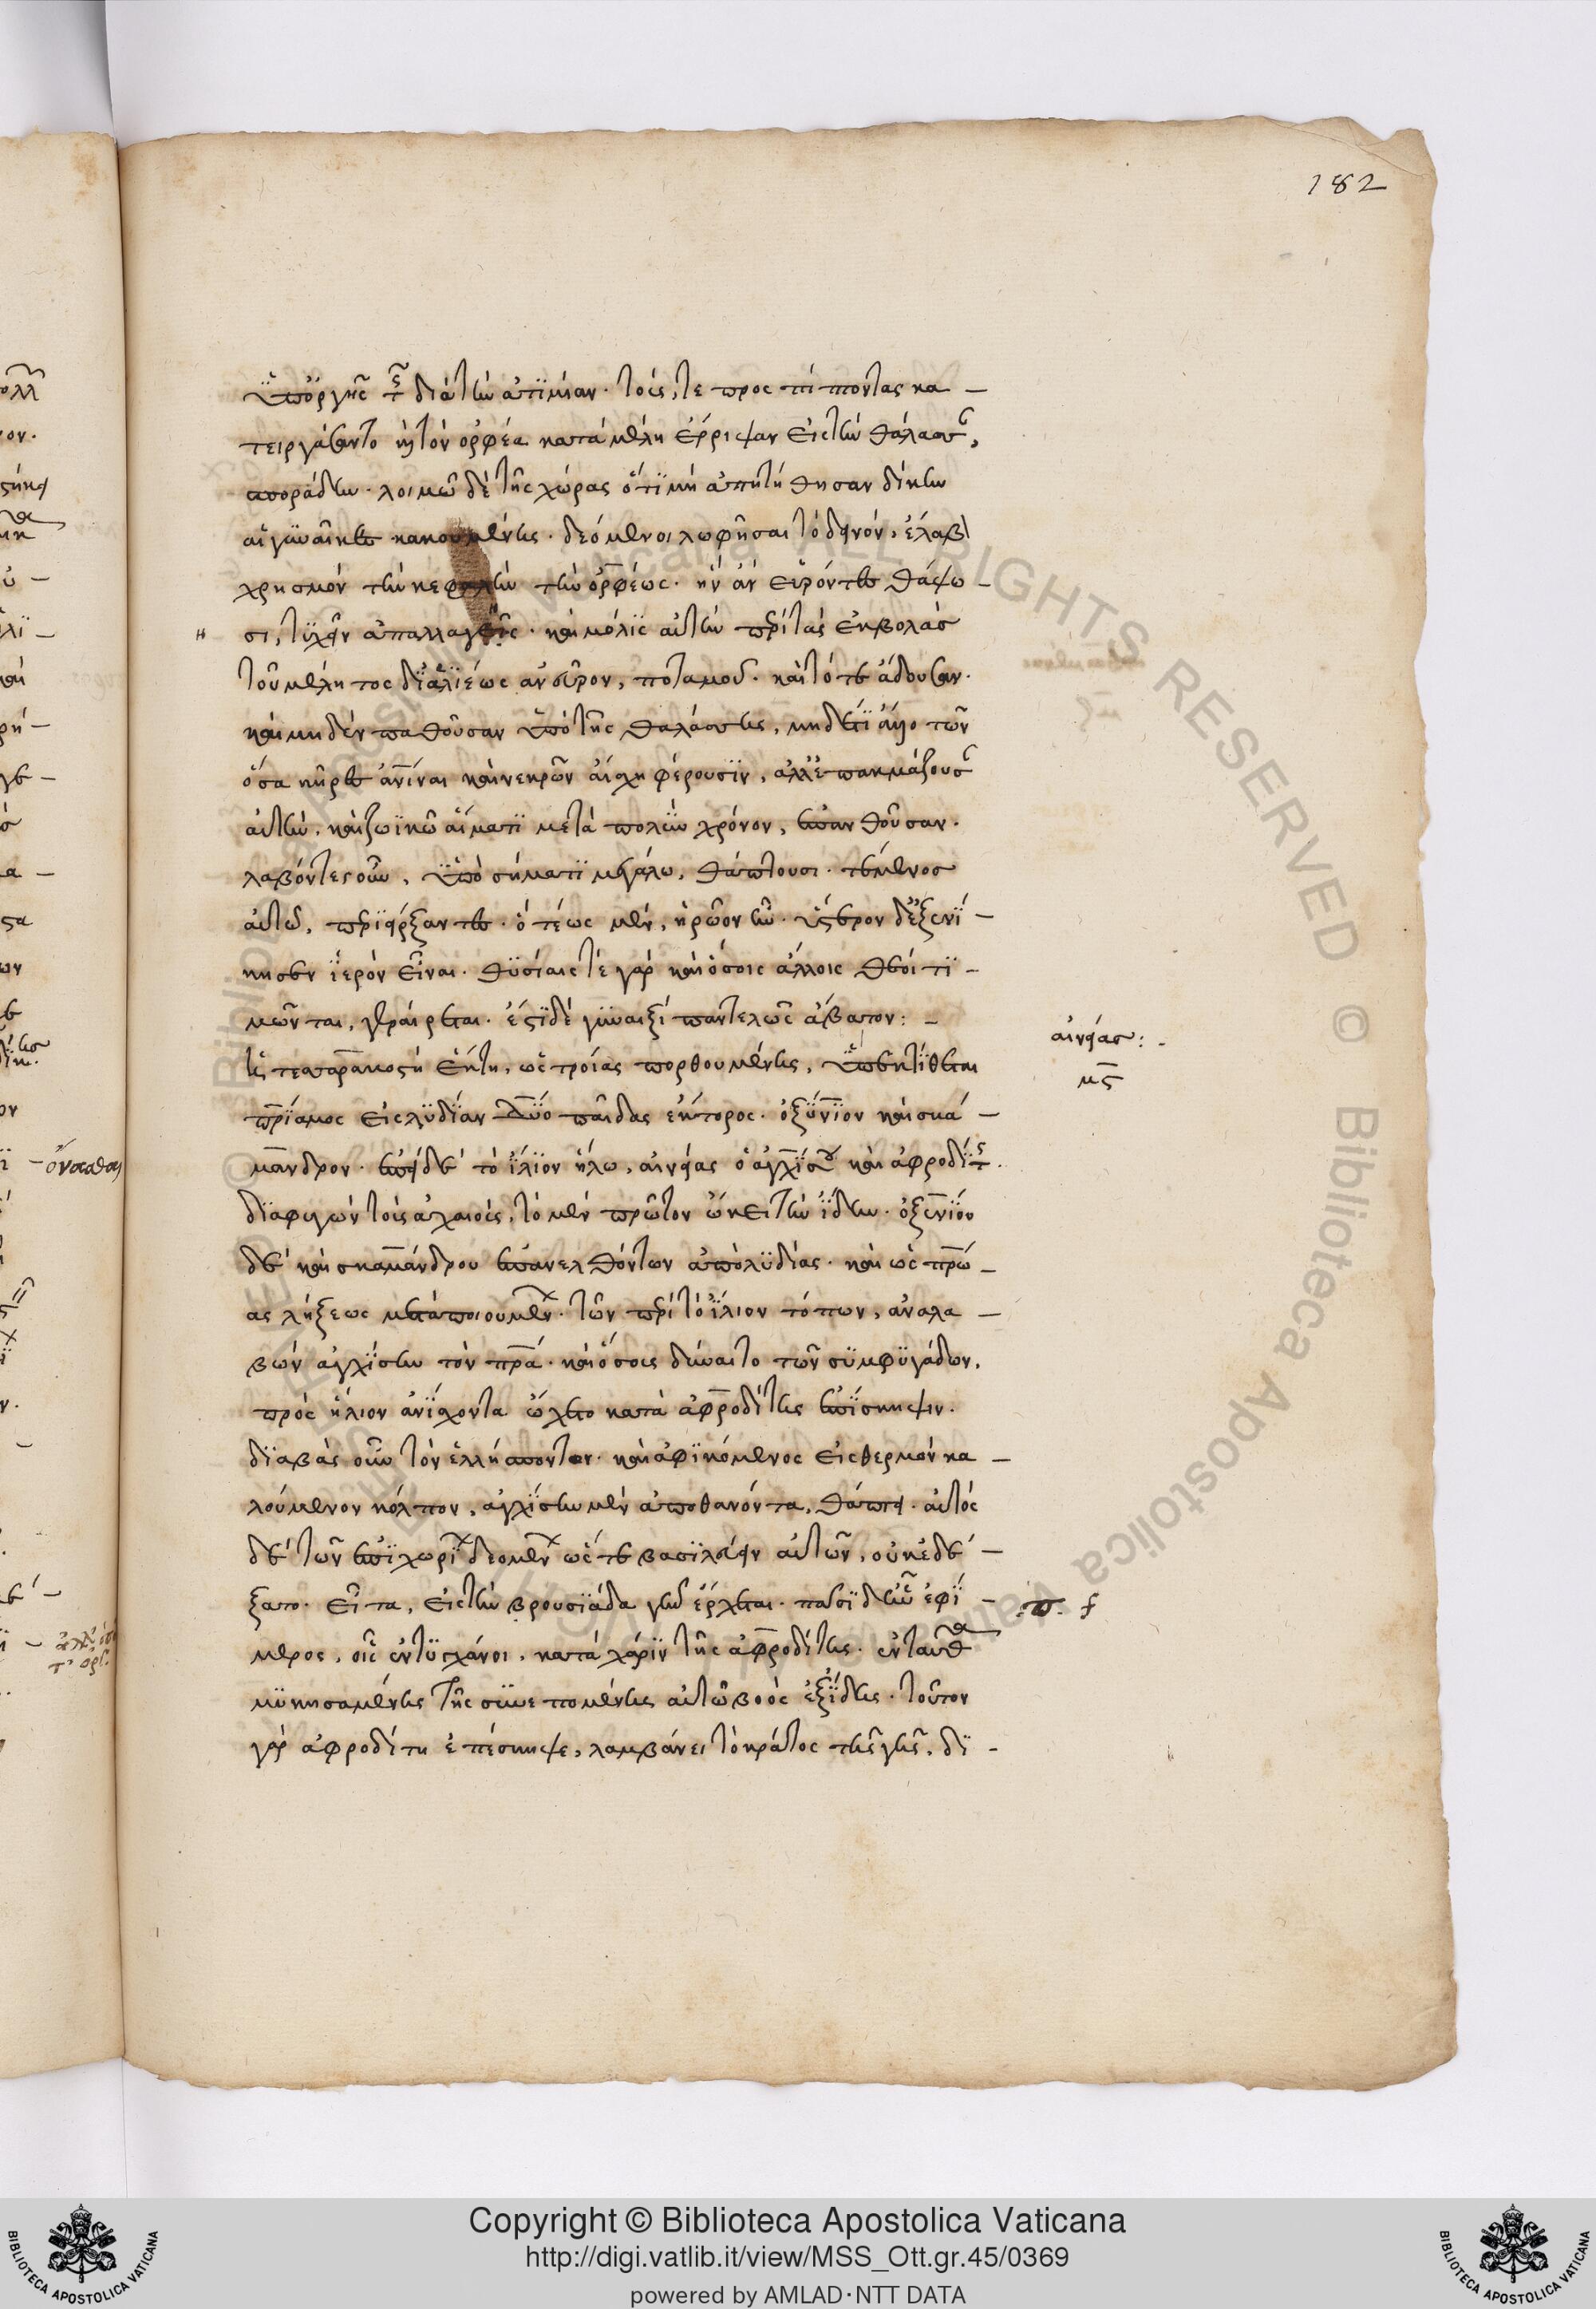 182
ὑπ' ὀργῆς τῆς διὰ τὴν ἀτιμίαν. τούς, τε προσπίπτοντας κα –
τειργάσαντο καὶ τὸν ὀρφέα κατὰ μέλη ἔρριψαν εἰς τὴν θάλασσαν,
σποράδην. λοιμῶ δὲ τῆς χώρας ὅτι μὴ ἀπῃτήθησαν δίκην
αἱ γυναῖκες κακουμένης. δεόμενοι λωφῆσαι τὸ δεινόν, ἔλαβον
χρησμόν τὴν κεφαλὴν τὴν ὀρφέως. ἢν ἀνευρόντες θάψω –
σι, τυχεῖν ἀπαλλαγῆς. καὶ μόλις αὐτὴν περὶ τὰς ἐκβολὰς
τοῦ μέλητος δι' ἁλιέως ἀνεῦρον, ποταμοῦ. καὶ τότε ἄδουσαν.
καὶ μηδὲν παθοῦσαν ὑπὸ τῆς θαλάσσης, μηδέ τι ἄλλο τῶν
ὅσα κῆρες ἀνθρώπιναι καὶ νεκρῶν αἴσχη φέρουσιν, ἀλλ' ἐπακμάζουσαν
αὐτὴν. καὶ ζωϊκῶ αἵματι μετὰ πολὺν χρόνον, ἐπανθοῦσαν.
λαβόντες οὖν, ὑπὸ σήματι μεγάλω, θάπτουσι. τέμενος
αὐτῶ, περιείρξαντες. ὃ τέως μὲν, ἡρῶον ἦν. ὕστερον δ' ἐξενί –
κησεν ἱερὸν εἶναι. θυσίαις τε γὰρ καὶ ὅσοις ἄλλοις θεοὶ τι –
μῶνται, γεραίρεται. ἔστι δὲ γυναιξὶ παντελῶς ἄβατον: –
αἰνείας: –
μϛ
ἡ τεσσαρακοστὴ ἕκτη, ὡς τροίας πορθουμένης, ὑπεκτίθεται
πρίαμος εἰς λυδίαν δύο παῖδας ἕκτορος. ὀξύνιον καὶ σκά –
μανδρον. ἐπεὶ δὲ τὸ ἴλιον ἥλω, αἰνείας ὁ ἀγχίσου καὶ ἀφροδίτης.
διαφυγὼν τοὺς ἀχαιούς, τὸ μὲν πρῶτον ὤκει τὴν ἴδην. ὀξυνίου
δὲ καὶ σκαμάνδρου ἐπανελθόντων ἀπὸ λυδίας. καὶ ὡς πρώ –
ας λήξεως μεταποιουμένων. τῶν περὶ τὸ ἴλιον τόπων, ἀναλα –
βὼν ἀγχίσην τὸν πατέρα. καὶ ὅσους δύναιτο τῶν συμφυγάδων,
πρὸς ἥλιον ἀνίσχοντα ὤχετο κατὰ ἀφροδίτης ἐπίσκηψιν.
διαβὰς οὖν τὸν ἑλλήσποντον. καὶ ἀφικόμενος εἰς θερμὸν κα –
λούμενον κόλπον, ἀγχίσην μὲν ἀποθανόντα, θάπτει. αὐτὸς
δὲ τῶν ἐπιχωρίων δεομένων ὥστε βασιλεύειν αὐτῶν, οὐκ ἐδέ –
ξατο. εἶτα, εἰς τὴν βρουσιάδα γῆν ἔρχεται. πᾶσι δὲ ἦν ἐφί –
μερος, οἷς ἐντυγχάνοι, κατὰ χάριν τῆς ἀφροδίτης. ἐνταῦθα
μυκησαμένης τῆς συνεπομένης αὐτῶ βοὸς ἐξ ἴδης. τοῦτον
γὰρ ἀφροδίτη ἐπέσκηψε, λαμβάνει τὸ κράτος τῆς γῆς, δι –
Copyright © Biblioteca Apostolica Vaticana
http://digi.vatlib.it/view/MSS_Ott.gr.45/0369
powered by AMLAD·NTT DATA